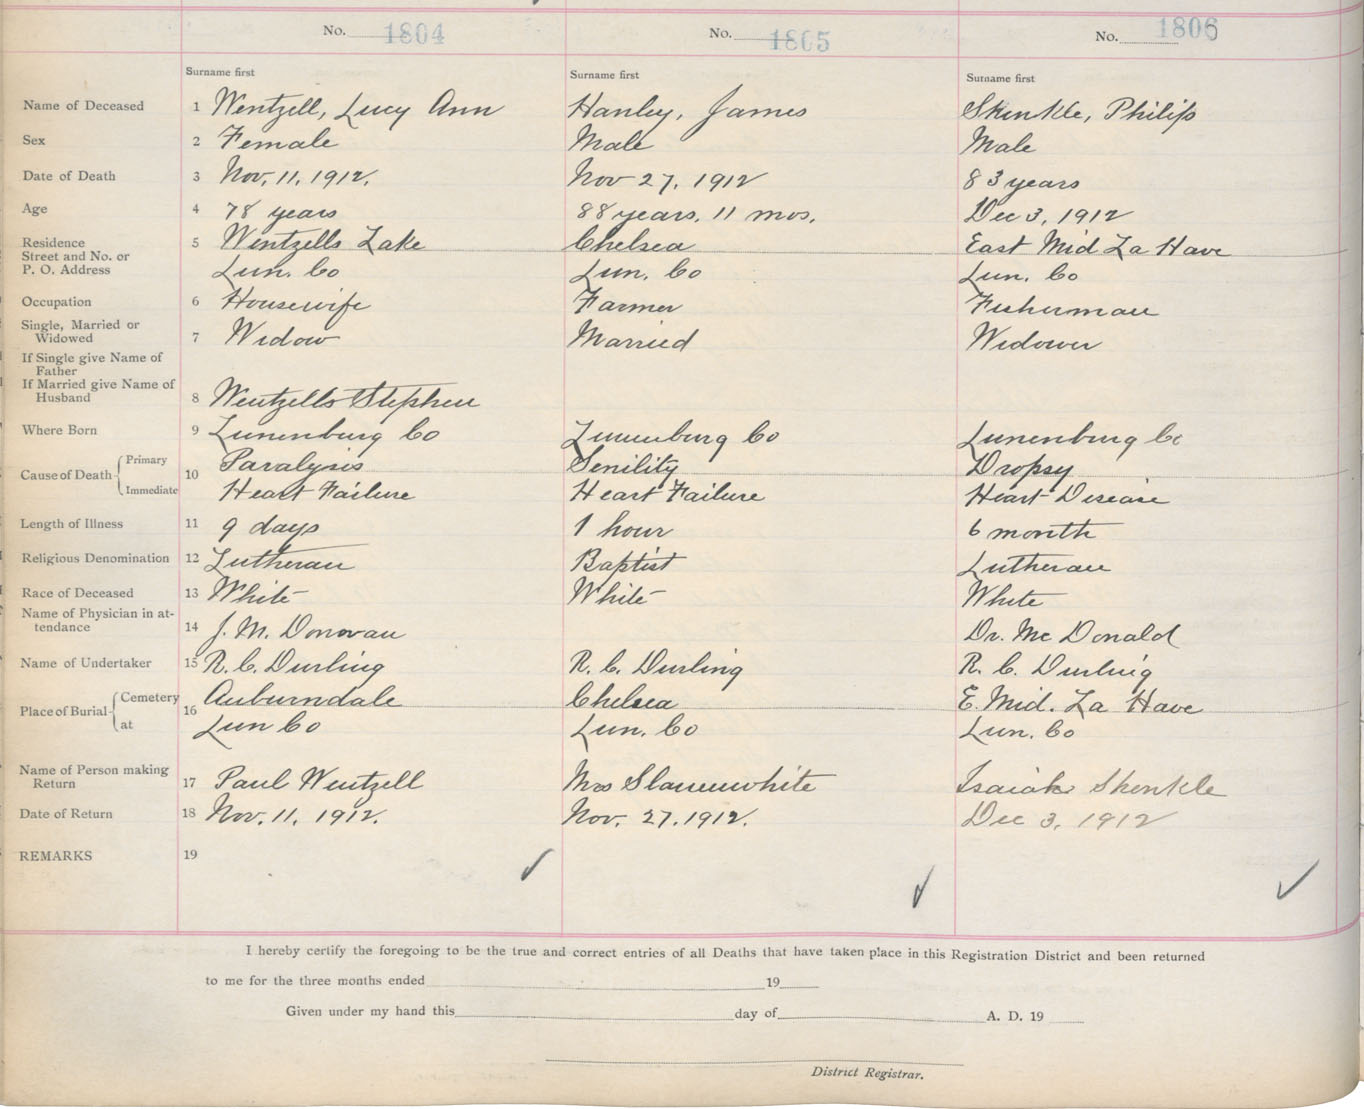 No. 1804 No. 1805 No. 1806
Surname first Surname first Surname first
Name of Deceased 1 Wentzell, Lucy Ann Hanley, James Skenkle, Philip
Sex 2 Female Male Male
Date of Death 3 Nov, 11, 1912. Nov 27, 1912 83 years
Age 4 78 years 88 years, 11 mos. Dec 3, 1912
Residence 5 Wentzells Lake Chelsea East Mid La Have
Street and No. or
P. O. Address Lun. Co Lun. Co Lun. Co
Occupation 6 Housewife Farmer Fisherman
Single, Married or
Widowed 7 Widow Married Widower
If Single give Name of
Father
If Married give Name of
Husband 8 Wentzells Stephen
Where Born 9 Lunenburg Co Lunenburg Co Lunenburg Co
Cause of Death Primary 10 Paralysis Senility Dropsy
Immediate Heart Failure Heart Failure Heart Disease
Length of Illness 11 9 days 1 hour 6 month
Religious Denomination 12 Lutheran Baptist Lutheran
Race of Deceased 13 White White White
Name of Physician in at-
tendance 14 J. M. Donovan Dr. Mc Donald
Name of Undertaker 15 R. C. Durling R. C. Durling R. C. Durling
Place of Burial Cemetery 16 Auburndale Chelsea E. Mid. La Have
at Lun Co Lun. Co Lun. Co
Name of Person making
Return 17 Paul Wentzell Mrs Slauenwhite Isaiah Shenkle
Date of Return 18 Nov. 11, 1912. Nov. 27, 1912. Dec 3, 1912
REMARKS 19
I hereby certify the foregoing to be the true and correct entries of all Deaths that have taken place in this Registration District and been returned
to me for the three months ended 19
Given under my hand this day of A. D. 19
District Registrar.